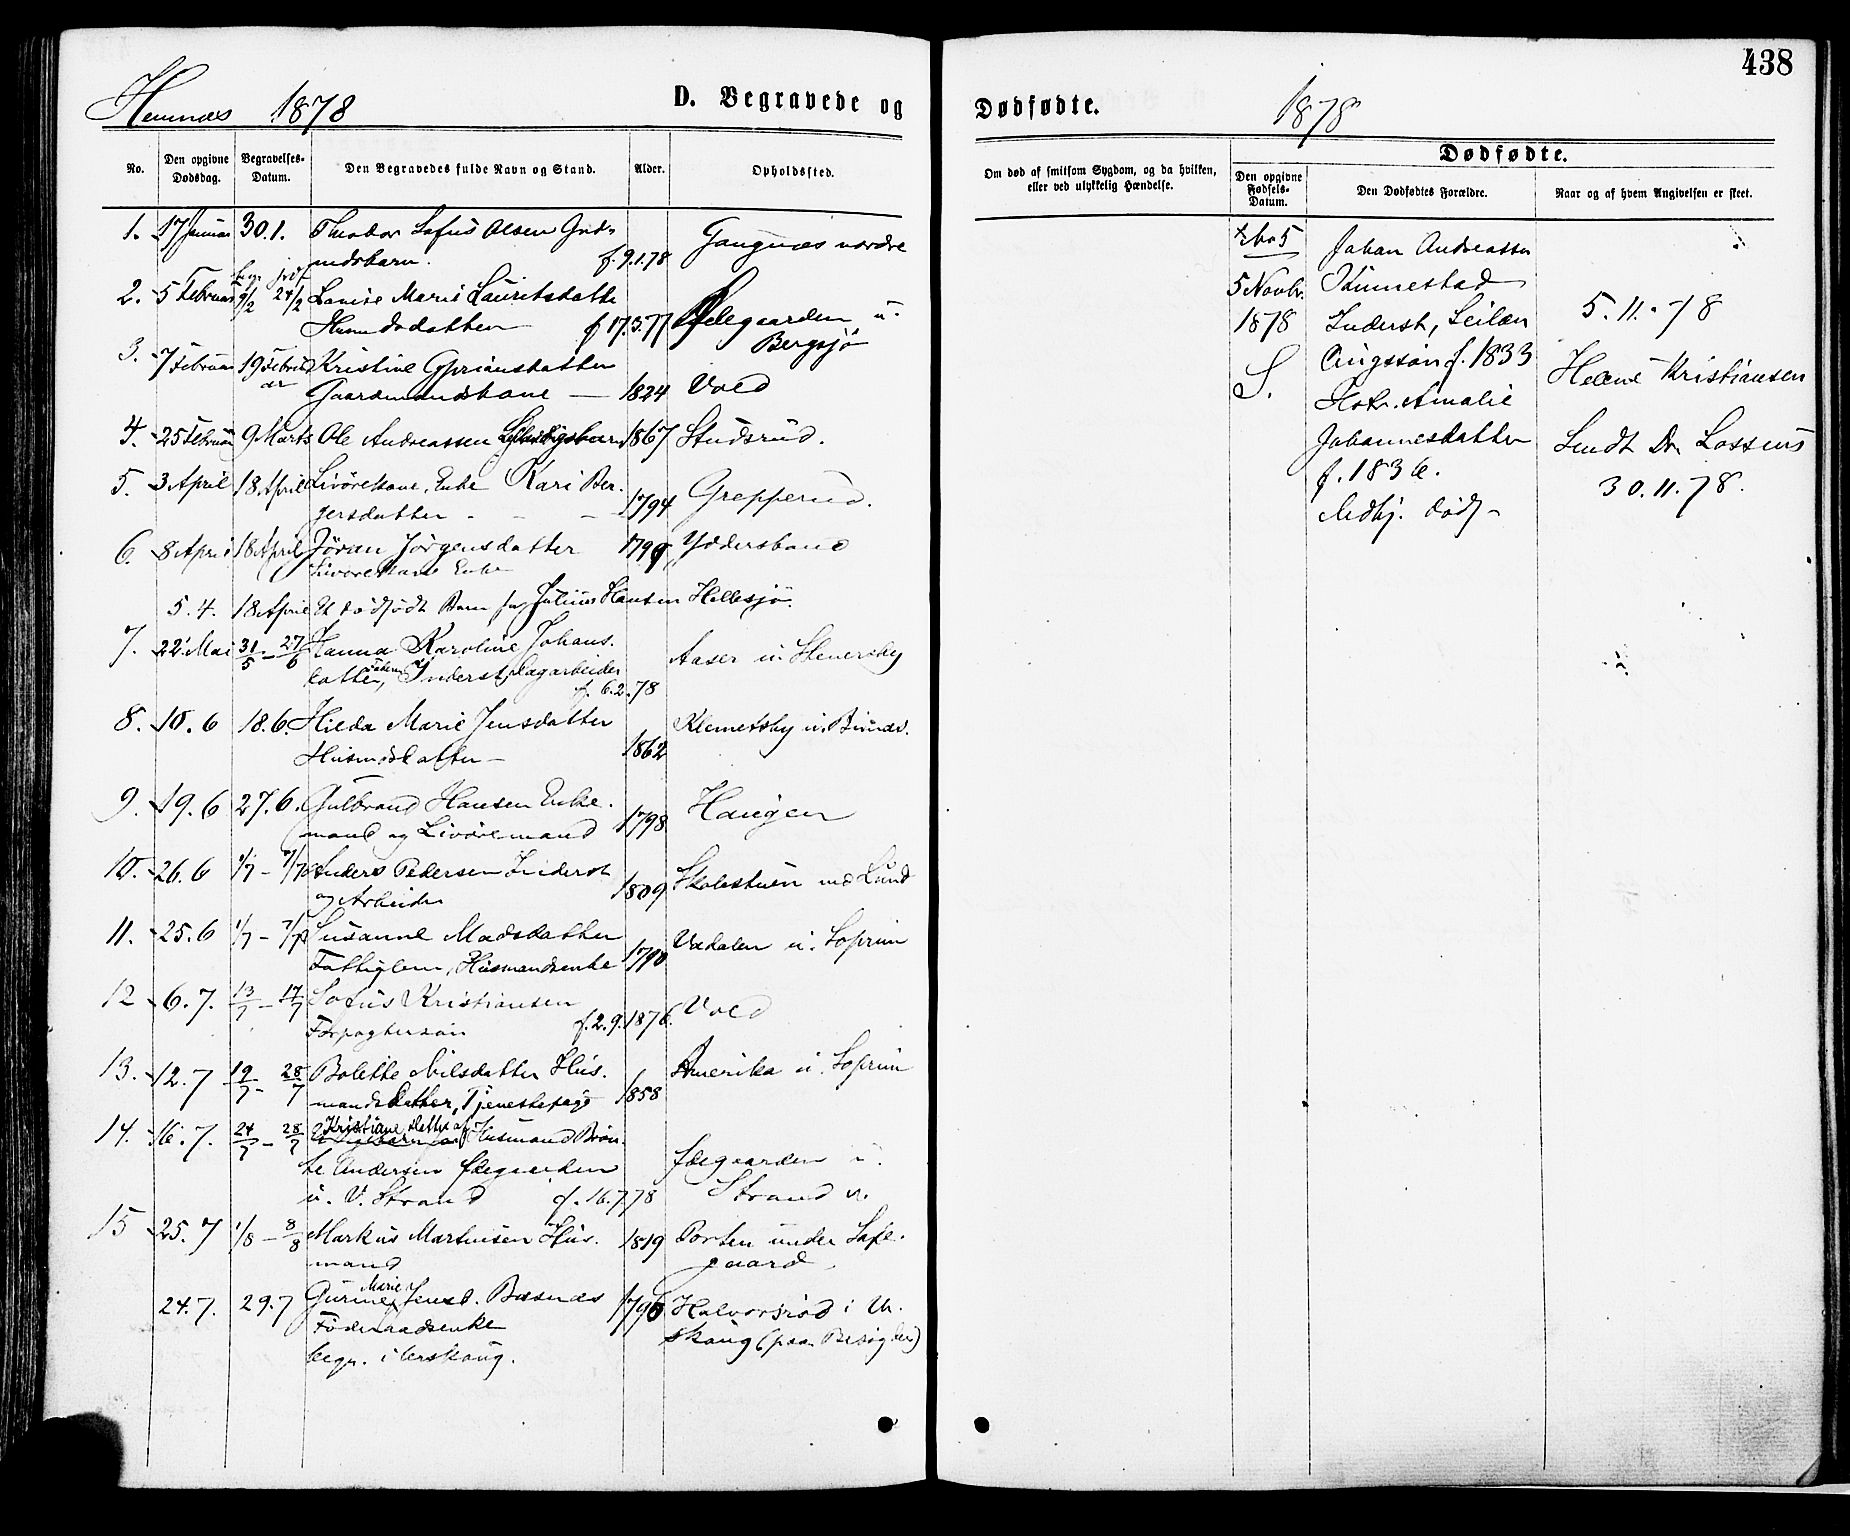 438
Hemnæs 1878 D. Begravede og Dødfødte. 1878
No. Den opgivne Dødsdag. Begravelses-Datum. Den Begravedes fulde Navn og Stand. Alder. Opholdssted.
Om død af smitsom Sygdom, og da hvilken, eller ved ulykkelig Hændelse.
Dødfødte.
Den opgivne Fødsels-Datum. Den Dødfødtes Forældre. Naar og af hvem Angivelsen er skeet.
1. 17 Januar 30.1. Theodor Sofus Olsen Grd-
mdsbarn. f. 9.1.78 Gangnæs nordre
2. 5 Februar 9/2 24/2 Lovise Marie Lauritsdatter
Husmdsdatter f 17.3.77 Fægaarden u.
Bergsjø
3. 7 Februar 19 Februar Kristine Gpriansdatter
Gaardmandskone — 1824 Vold
4. 25 Februar 9 Marts Ole Andreassen 1867 Studsrud.
5. 3 April 18 April Livørekone, Enke Kari Ber-
gersdatter - - - 1794 Grepperud.
6. 8 April 18 April Jøran Jørgensdatter 1799 Ydersbond
Livørekone Enke
5.4. 18 April Et dødfødt Barn for Julius Hansen Hellesjø.
7. 22 Mai 31/5 - 27/6 Hanna Karoline Johans-
datter, Inderst, Dagarbeider
f. 6.2.78 Aaser u. Henersby
8. 10.6 18.6. Hilda Marie Jensdatter
Husmdsdatter — 1862 Klemetsby u.
9. 19.6 27.6. Gulbrand Hansen Enke-
mand og Livøremand 1798 Haugen
10. 26.6 1/7 - 7/7 Anders Pedersen Inderst
og Arbeider 1809 Skolestuen ved Lund
11. 25.6 1/7 - 7/7 Susanne Madsdatter
Fattiglem, Husmandsenke 1790 Vadalen u. Soprim
12 6.7. 13/7 - 14/7 Sofus Kristiansen
Forpagtersøn f. 2.9.1876. Vold
13. 12.7 19/7 - 28/7 Bolette Nilsdatter Hus-
mandsdatter, Tjenestepige 1858 Amerika u. Soprim
14. 16.7. 24/7 - 28/7 Kristiane Datter af Husmand Brøn-
te Andersen Fægaarden
u. V. Strand f. 16.7.78 Fægaarden u.
Strand v.
15 25.7 1/8 - 8/8 Markus Martinsen Hus-
mand 1819 Porten under Lafe-
gaard
24.7. 29.7 Gurine Marie Jensd. Basnæs 1796 Halvorsrød i Ur-
Føderaadsenke skoug (paa Besøg der)
begr. i Urskoug.
5 Novbr.
1878
S.
Johan Andreassen
Kinnestad
Inderst, Leilæn-
dingssøn f. 1833
Hstr. Amalie
Johannesdatter
f. 1836.
5.11.-78
Helene Kristiansen
Sendt Dr. Lossius
30.11.78.